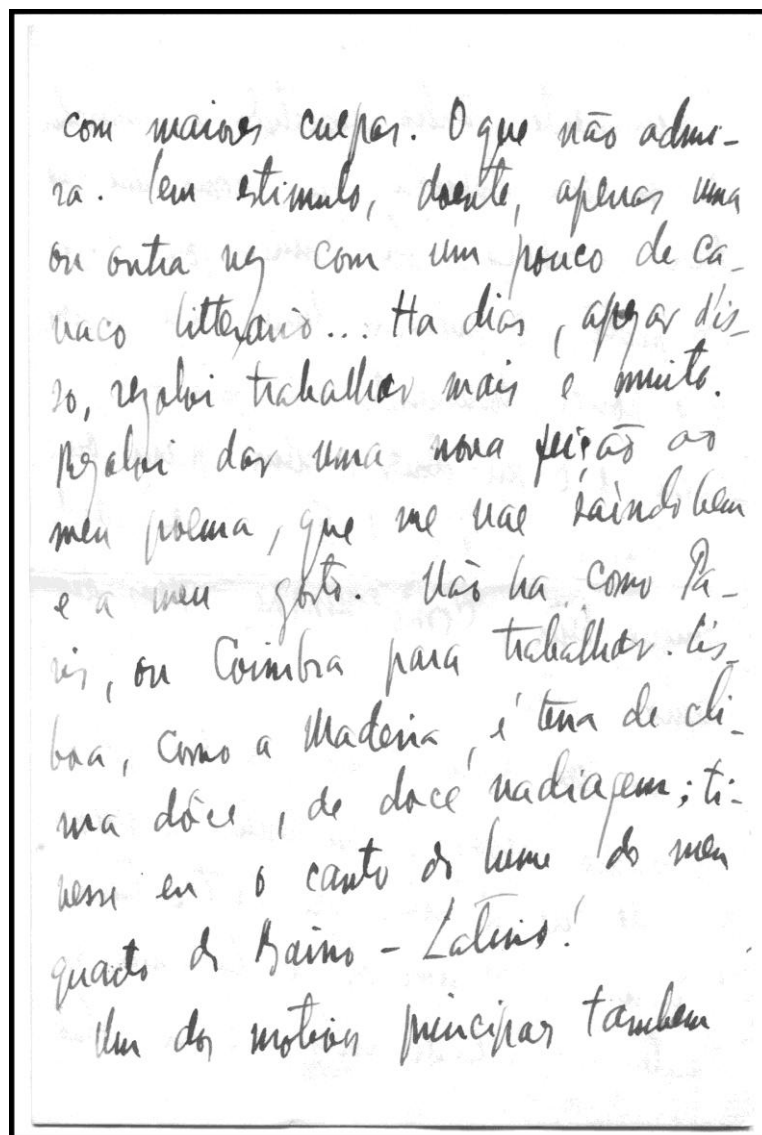 com maiores culpas. O que não admi-
ra. Sem estimulo, doente, apenas uma
ou outra vez com um pouco de ca-
vaco litterario... Ha dias, apezar d'is-
so, rezolvi trabalhar mais e muito.
Rezolvi dar uma nova feição ao
meu poema, que me vae saindo bem
e a meu gosto. Não ha como Pa-
ris, ou Coimbra para trabalhar. Lis-
boa, como a Madeira, é terra de cli-
ma dôce, de doce vadiagem; ti-
vesse eu o canto do lume do meu
quarto do Bairro-Latino!
Um dos motivos principaes tambem